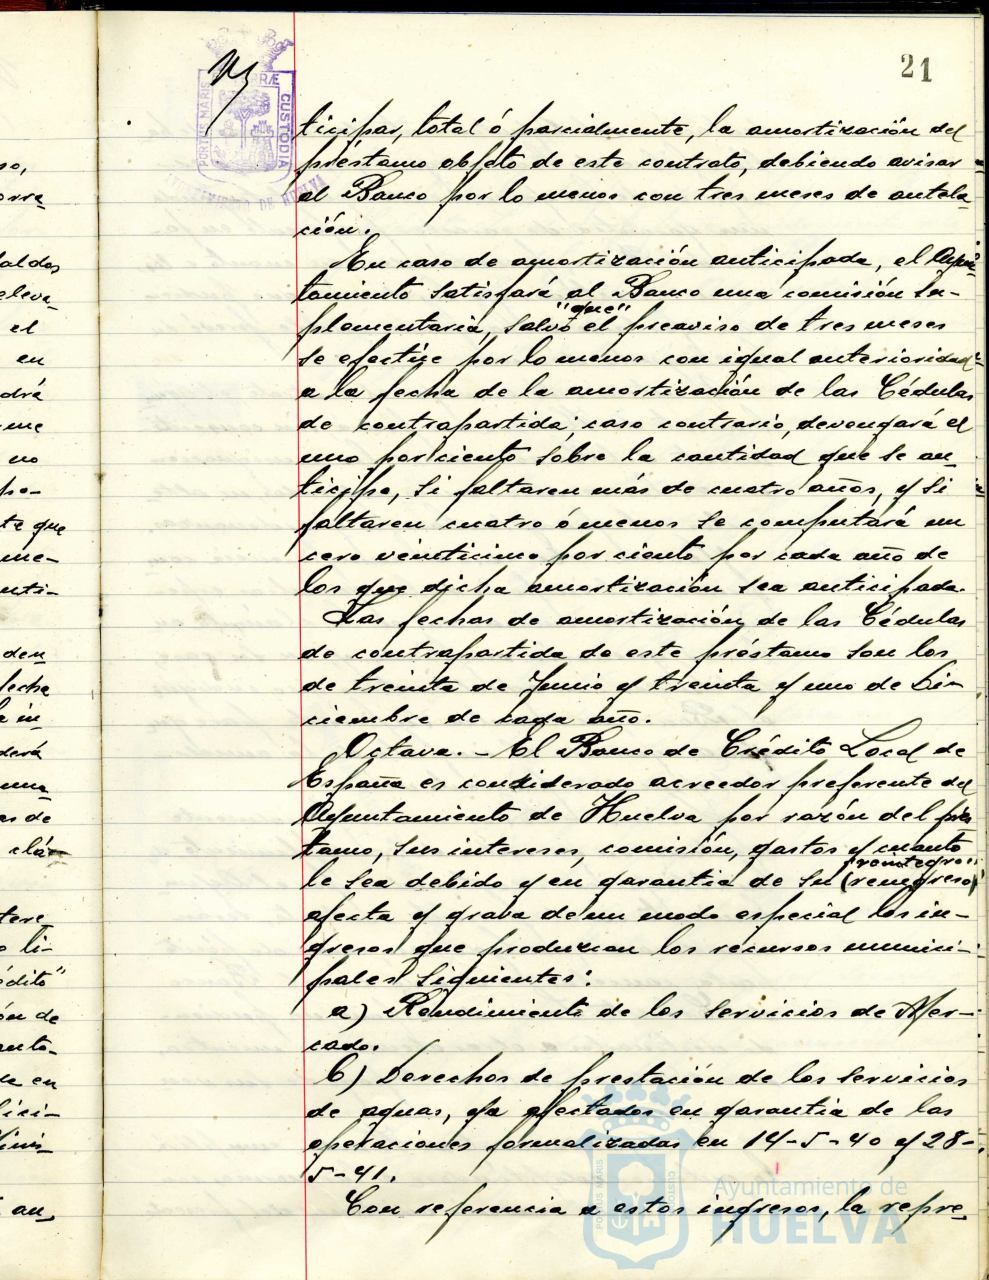 21
PORTUS MARIS
CUSTODIA
ticipar, total ó parcialmente, la amortización del
préstamo objeto de este contrato, debiendo avisar
al Banco por lo menos con tres meses de antela-
ción.
En caso de amortización anticipada, el Ayun-
tamiento satisfará al Banco una comisión su-
"que"
plementaria, salvo el preaviso de tres meses
se efectúe por lo menos con igual anterioridad
a la fecha de la amortización de las Cédulas
de contrapartida; caso contrario, devengará el
uno por ciento sobre la cantidad que se an-
ticipe, si faltaren más de cuatro años, y si
faltaren cuatro ó menos se computará un
cero veinticinco por ciento por cada año de
los que dicha amortización sea anticipada.
Las fechas de amortización de las Cédulas
de contrapartida de este préstamo son los
de treinta de Junio y treinta y uno de Di-
ciembre de cada año.
Octava. - El Banco de Crédito Local de
España es considerado acreedor preferente del
Ayuntamiento de Huelva por razón del prés-
tamo, sus intereses, comisión, gastos y cuanto
"reintegro"
le sea debido y en garantia de su (reingreso)
afecta y grava de un modo especial los in-
gresos que produzcan los recursos munici-
pales siguientes:
a) Rendimiento de los servicios de Mer-
cado.
b) Derechos de prestación de los servicios
de aguas, ya afectados en garantia de las
operaciones formalizadas en 14-5-40 y 28-
5-41.
Con referencia a estos ingresos, la repre-
Ayuntamiento de
HUELVA
so,
el
en
drá
me
no
po-
ta que
me-
den
fecha
in
derá
as de
clá-
li-
ón de
en
an